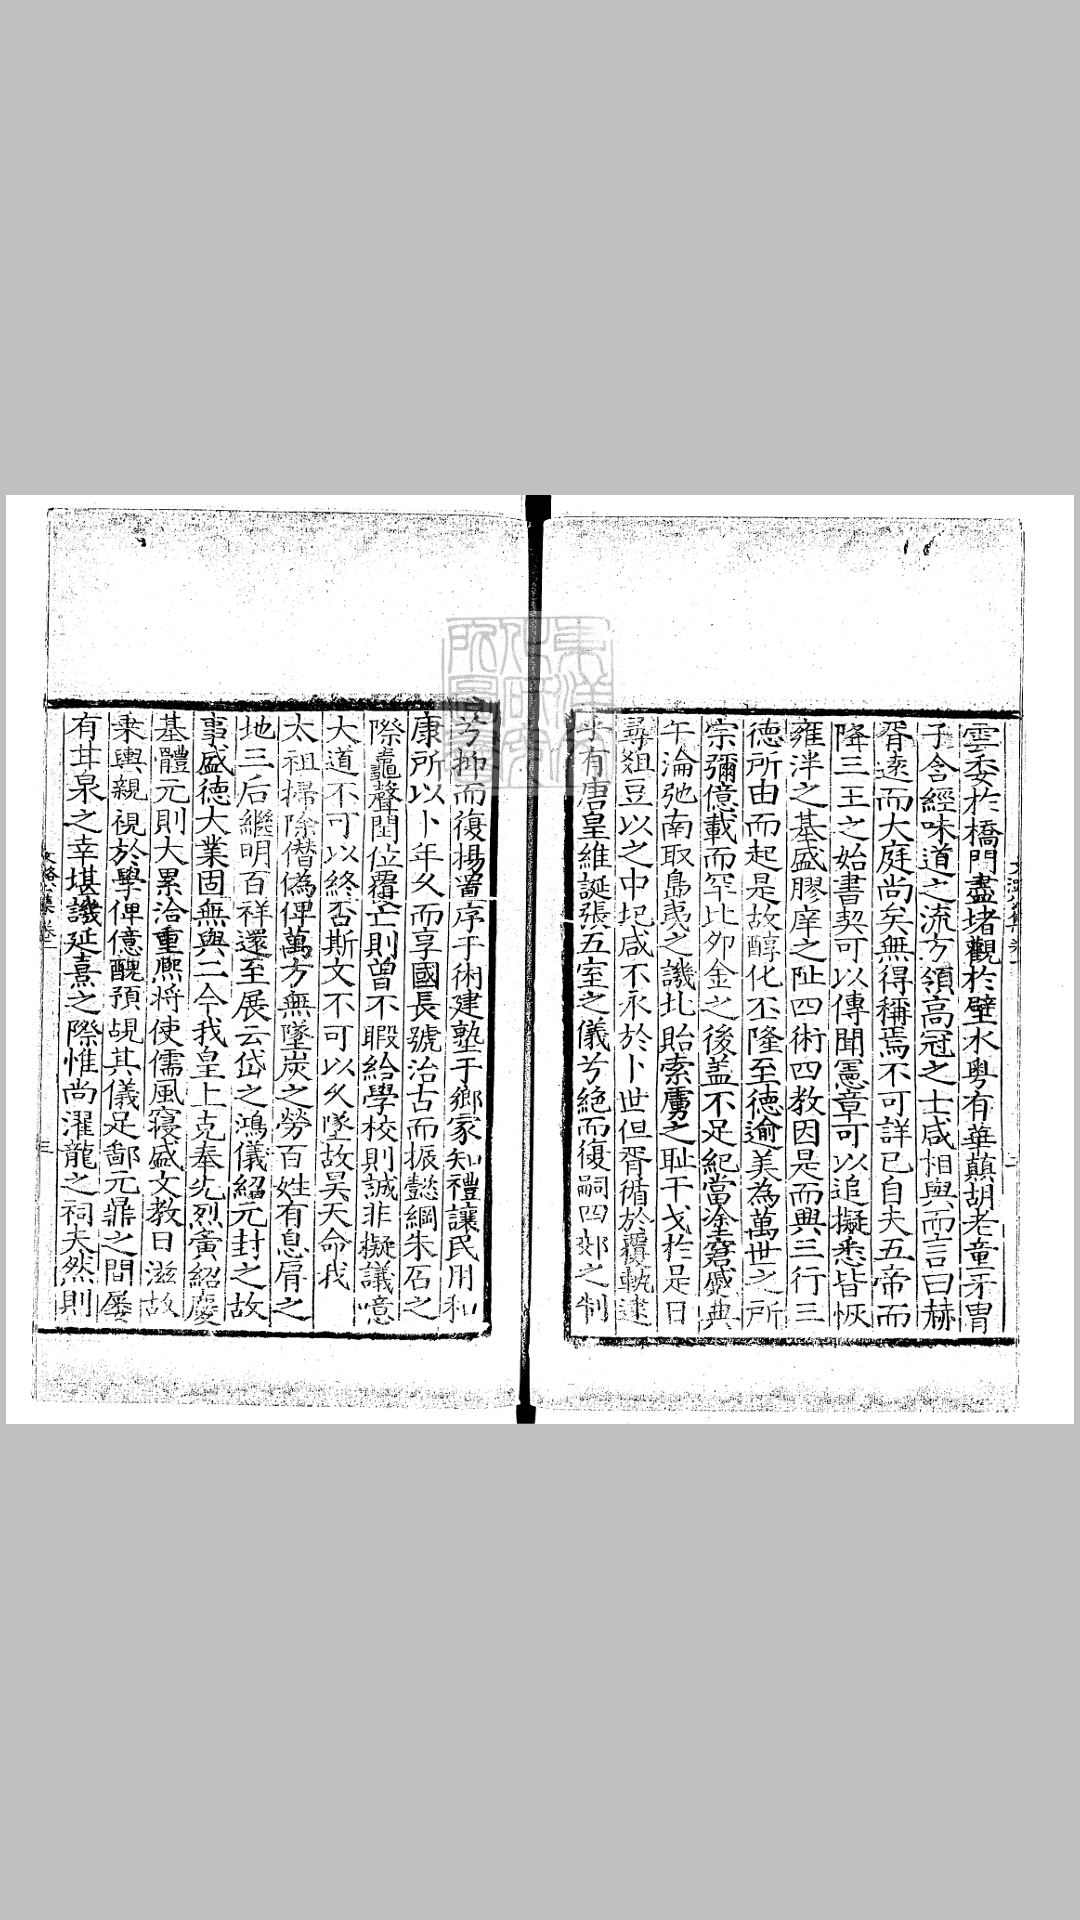 雲委於橋門盡堵觀於壁水粤有華顛胡老童牙冑
子含經味道之流方領高冠之士咸相與而言曰赫
胥逺而大庭尚矣無得稱焉不可詳已自夫五帝而
降三王之始書契可以傳聞憲章可以追擬悉皆恢
雍泮之基盛膠庠之阯四術四教因是而興三行三
徳所由而起是故醇化丕隆至徳逾美為萬世之所
宗彌億載而罕比夘金之後盖不足紀當塗窘蹙典
午淪弛南取島夷之譏北貽索虜之耻干戈於是日
尋俎豆以之中圮咸不永於卜世但胥循於覆軌逮
乎有唐皇維誕張五室之儀芳絶而復嗣四郊之制
芳抑而復楊啚序于術建塾于鄉家知禮讓民用和
康所以卜年久而享國長號治古而振懿綱朱石之
際鼃聲閏位覆亡則曽不暇給學校則誠非擬議噫
大道不可以終否斯文不可以乆墜故昊天命我
太祖掃除僣偽俾萬方無墜炭之勞百姓有息肩之
地三后繼明百祥還至展云岱之鴻儀紹元封之故
事盛徳大業固無與二今我皇上克奉先烈黃紹慶
基體元則大累洽重熈將使儒風寖盛文教日滋故
乗輿親視於學俾億醜預覘其儀足鄙元鼎之間屢
有甘泉之幸堪譏延熹之際惟尚濯龍之祠夫然則
卷二
三